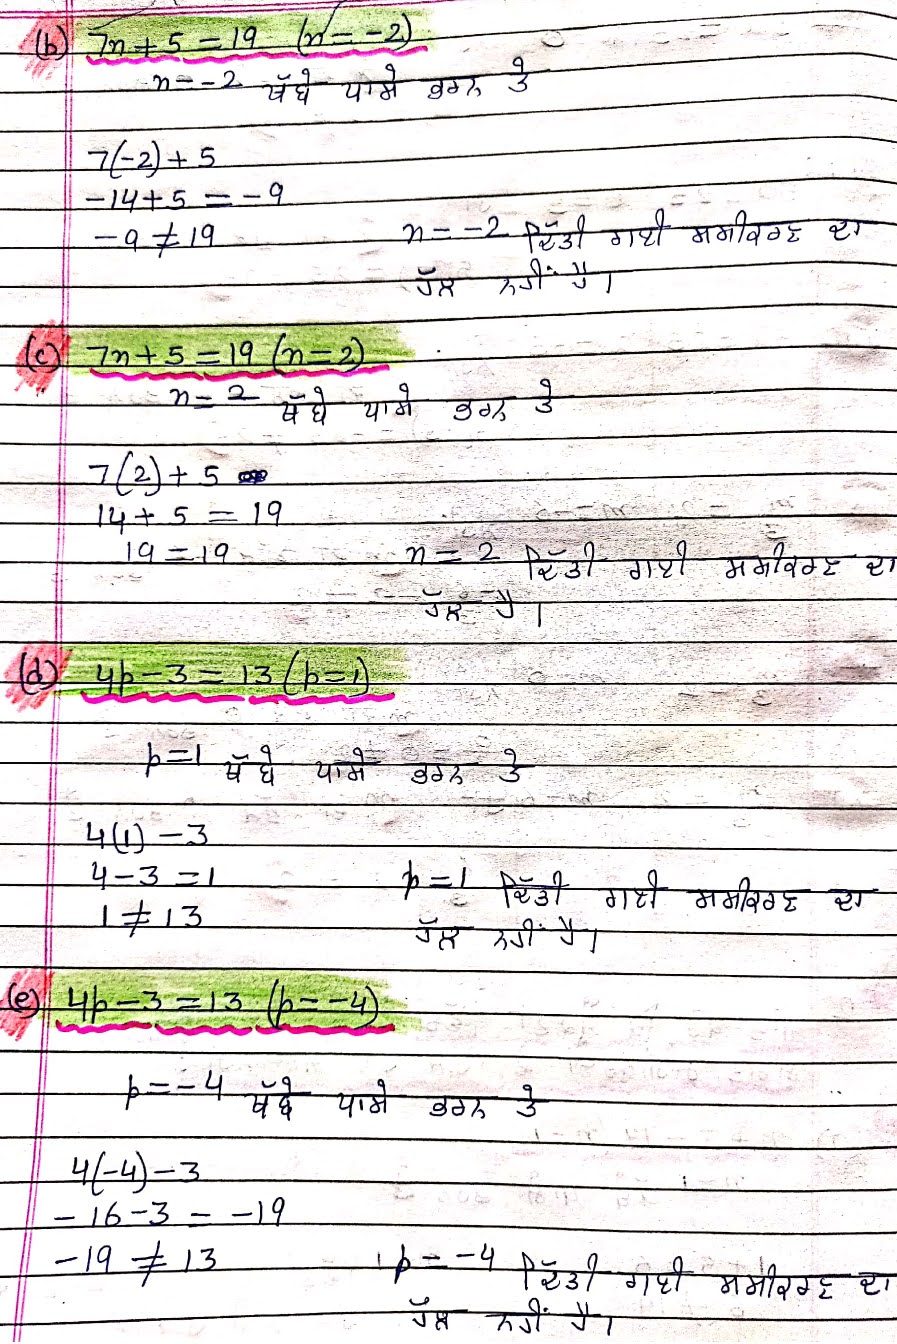 (b) 7n+5=19 (n=-2)
n=-2 ਖੱਬੇ ਪਾਸੇ ਭਰਨ ਤੇ
7(-2)+5
-14+5 = -9
-9 ≠ 19 n=-2 ਦਿੱਤੀ ਗਈ ਸਮੀਕਰਣ ਦਾ
ਹੱਲ ਨਹੀਂ ਹੈ।
(c) 7n+5=19 (n=2)
n=2 ਖੱਬੇ ਪਾਸੇ ਭਰਨ ਤੇ
7(2)+5
14+5 = 19
19=19 n=2 ਦਿੱਤੀ ਗਈ ਸਮੀਕਰਣ ਦਾ
ਹੱਲ ਹੈ।
(d) 4p-3=13 (p=1)
p=1 ਖੱਬੇ ਪਾਸੇ ਭਰਨ ਤੇ
4(1)-3
4-3=1 p=1 ਦਿੱਤੀ ਗਈ ਸਮੀਕਰਣ ਦਾ
1≠13 ਹੱਲ ਨਹੀਂ ਹੈ।
(e) 4p-3=13 (p=-4)
p=-4 ਖੱਬੇ ਪਾਸੇ ਭਰਨ ਤੇ
4(-4)-3
-16-3 = -19
-19 ≠ 13 p=-4 ਦਿੱਤੀ ਗਈ ਸਮੀਕਰਣ ਦਾ
ਹੱਲ ਨਹੀਂ ਹੈ।